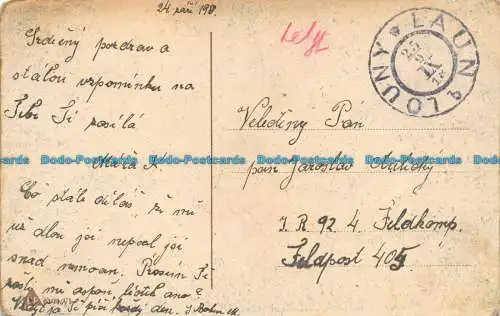 24 září 198.
Srdečný pozdrav a
stálou vzpomínku na
Tebe Ti posílá
Máňa K.
Co stále děláš, že mi
už dlou jsi nepsal jsi
snad nemocen. Prosím Tě
pošli mi aspoň lístek ano?
Vždyť já Ti píši každý den. S Bohem M.
LAUN * LOUNY
25
IX
18
Velectěný Pan
pan Jaroslav
I. R. 92. 4. Feldkomp.
Feldpost 405
Dodo-Postcards Dodo-Postcards Dodo-Postcards Dodo-Postcards Dodo-Postcards